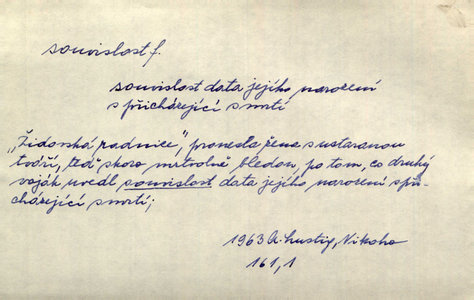 souvislost f.
souvislost data jejího narození
s přicházející smrtí
„Židovská radnice", pronesla žena s ustaranou
tváří, teď skoro mrtvolně bledou, po tom, co druhý
voják uvedl souvislost data jejího narození s při-
cházející smrtí;
1963 A. Lustig, Nikoho
161,1